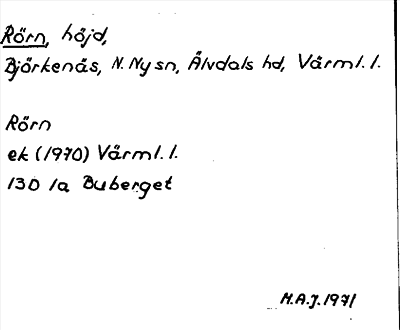 Rörn, höjd,
Björkenäs, N. Ny sn, Älvdals hd, Värml. l.
Rörn
ek (1970) Värml. l.
13D 1a Buberget
M.A.J. 1971